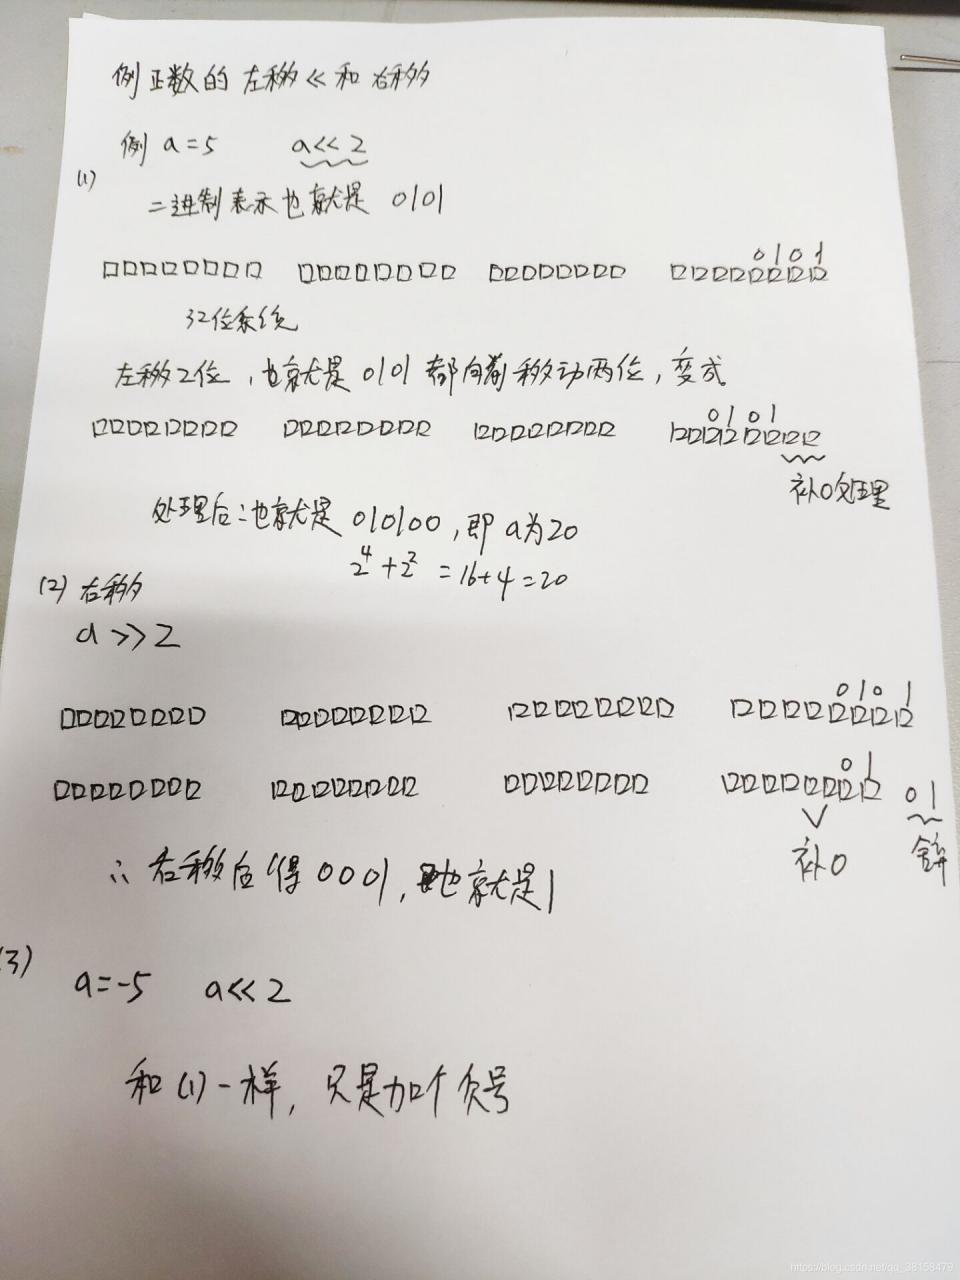 例 正数的左移<<和右移
例 a=5 a<<2
(1)
二进制表示也就是 0101
0101
32位系统
左移2位,也就是0101都向前移动两位,变成
0101
补0处理
处理后:也就是010100,即a为20
2⁴+2²=16+4=20
(2) 右移
a>>2
0101
01 01
补0 舍弃
∴右移后得0001,也就是1
(3) a=-5 a<<2
和(1)一样,只是加个负号
https://blog.csdn.net/qq_38158479